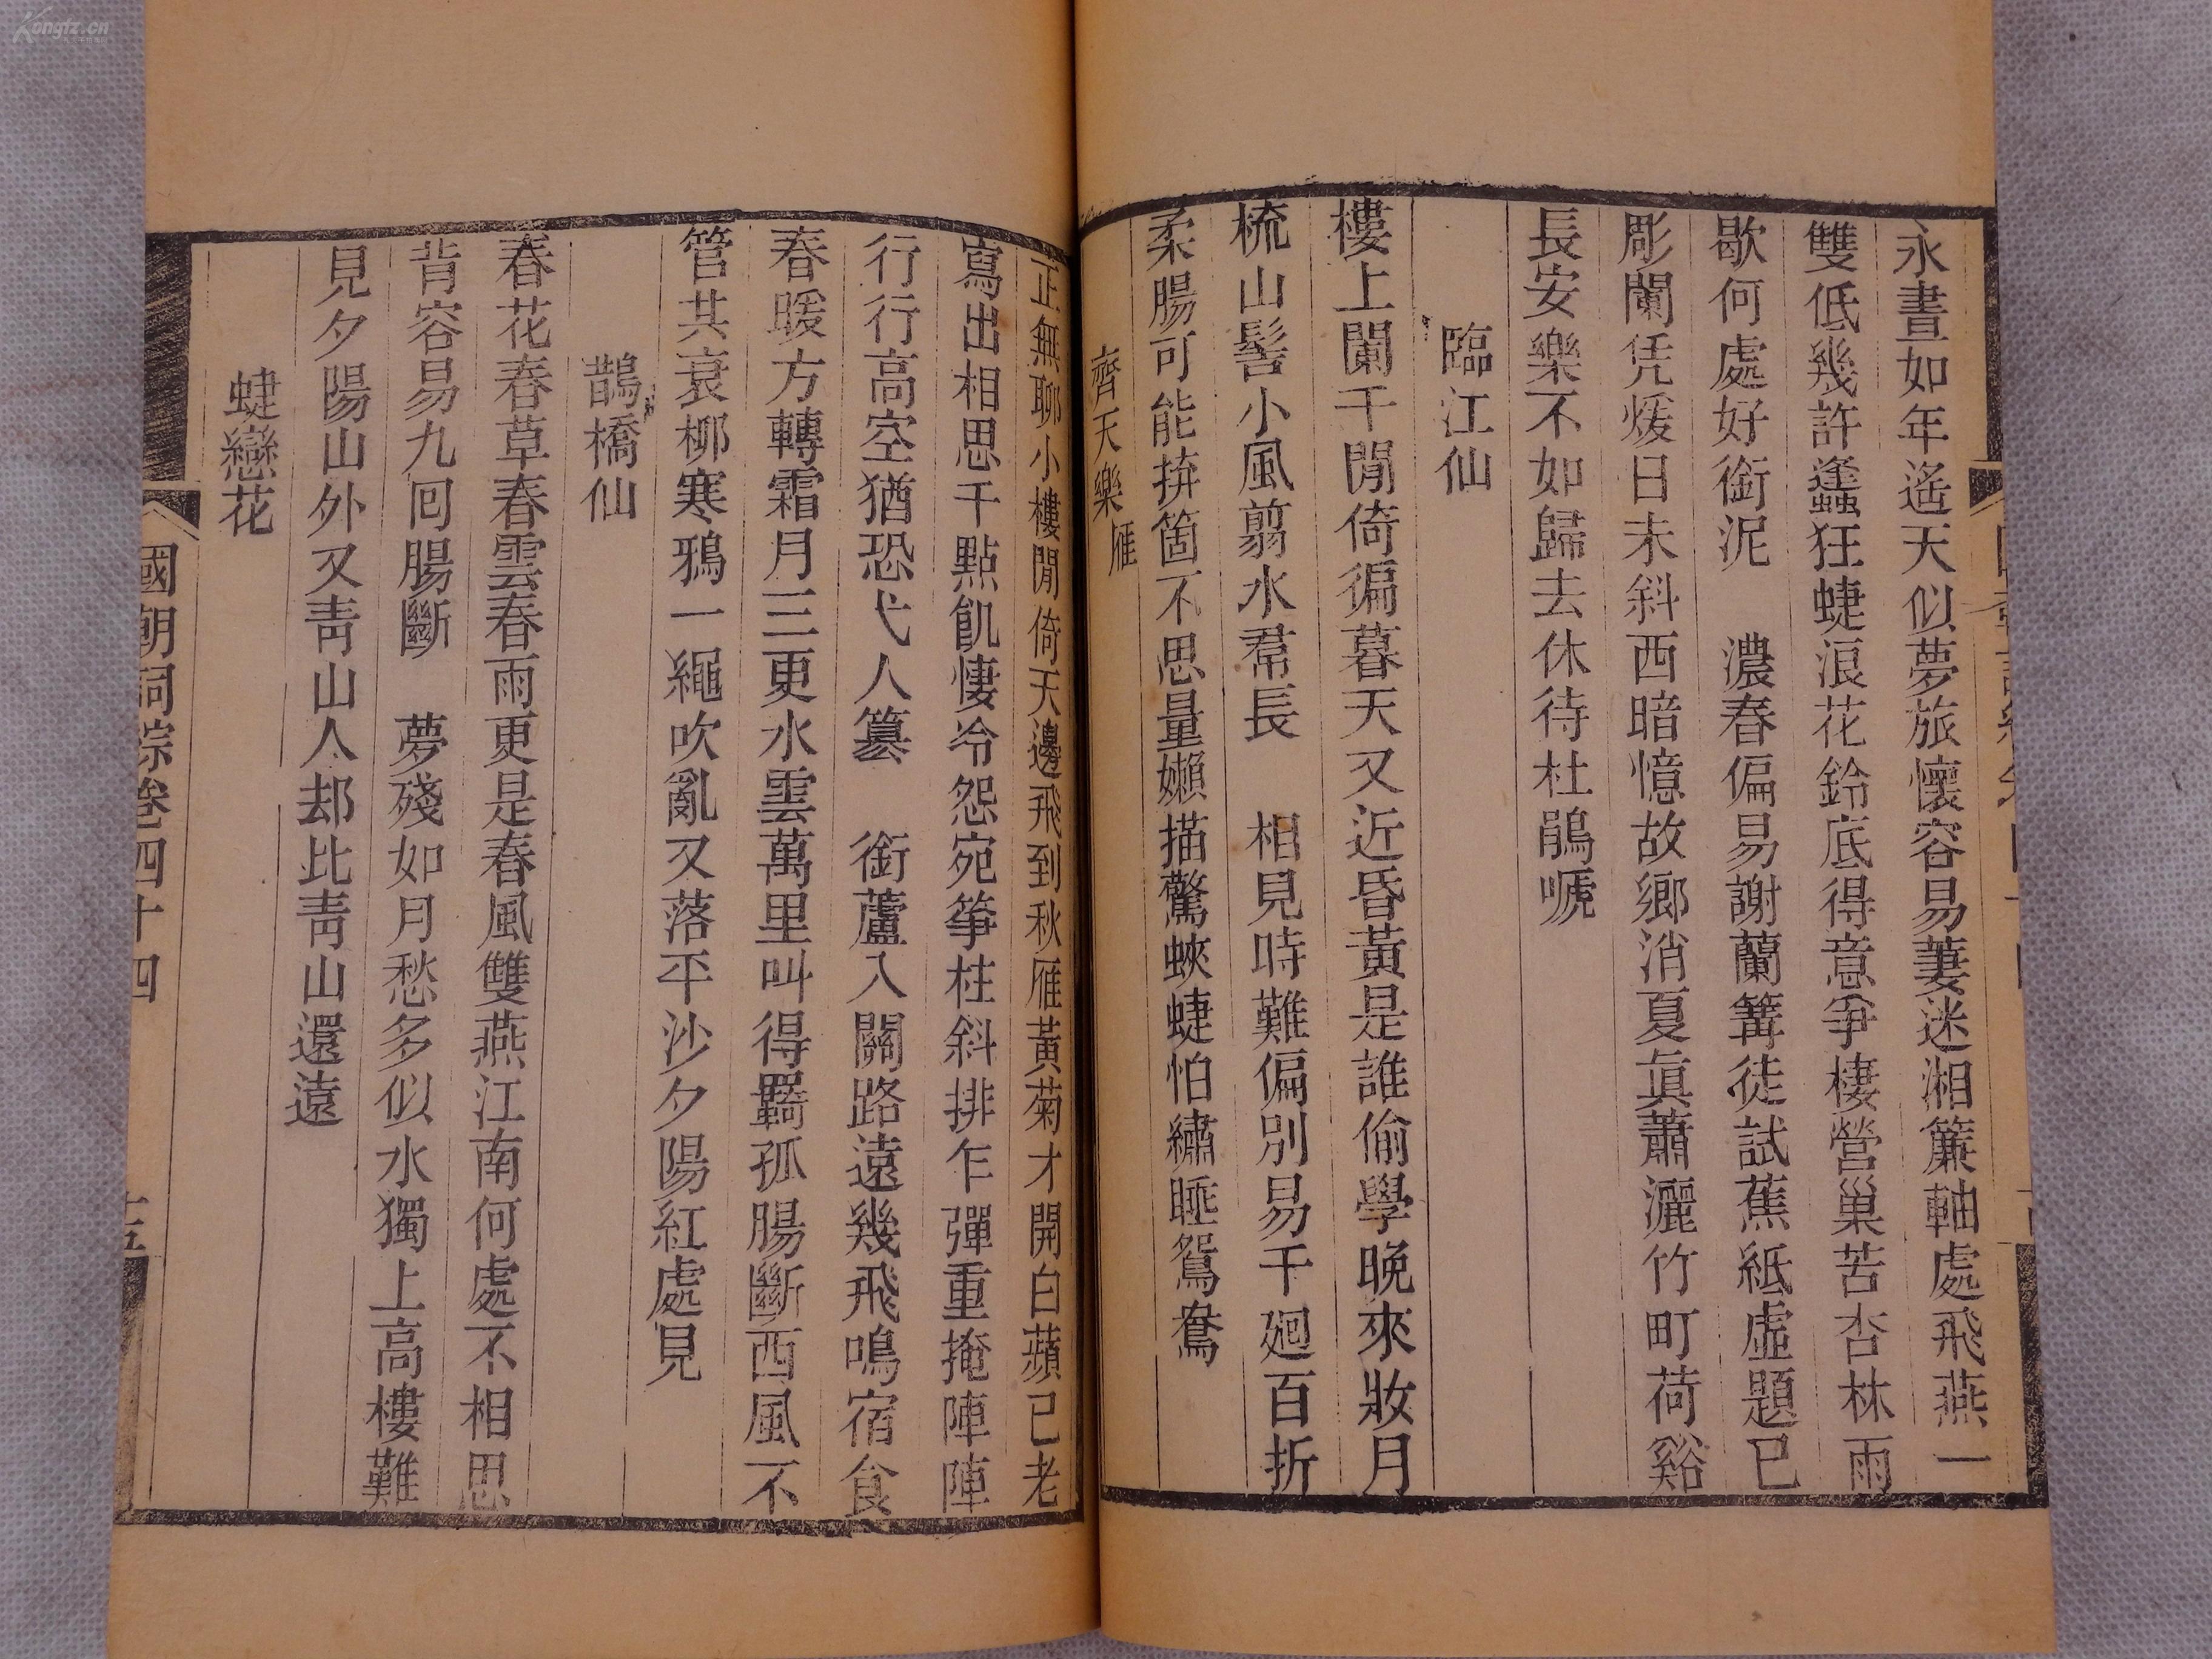 Kongfz.cn
永晝如年遙天似夢旅懷容易萋迷湘簾軸處飛燕一
雙低幾許蠭狂蜨浪花鈴底得意爭棲營巢苦杏林雨
歇何處好銜泥　濃春偏易謝蘭篝徒試蕉紙虛題已
彫闌凭煖日未斜西暗憶故鄉消夏眞蕭灑竹町荷谿
長安樂不如歸去休待杜鵑嗁
臨江仙
樓上闌干閒倚徧暮天又近昏黃是誰偷學晚來妝月
梳山髻小風翦水帬長　相見時難偏別易千廻百折
柔腸可能拚箇不思量嬾描驚蛺蜨怕繡睡鴛鴦
齊天樂 雁
正無聊小樓閒倚天邊飛到秋雁黃菊才開白蘋已老
寫出相思千點飢悽冷怨宛筝柱斜排乍彈重掩陣陣
行行高空猶恐弋人篡　銜蘆入關路遠幾飛鳴宿食
春暖方轉霜月三更水雲萬里叫得羈孤腸斷西風不
管共衰柳寒鴉一繩吹亂又落平沙夕陽紅處見
鵲橋仙
春花春草春雲春雨更是春風雙燕江南何處不相思
背容易九回腸斷　夢殘如月愁多似水獨上高樓難
見夕陽山外又靑山人却比靑山還遠
蜨戀花
國朝詞綜卷四十四
十五